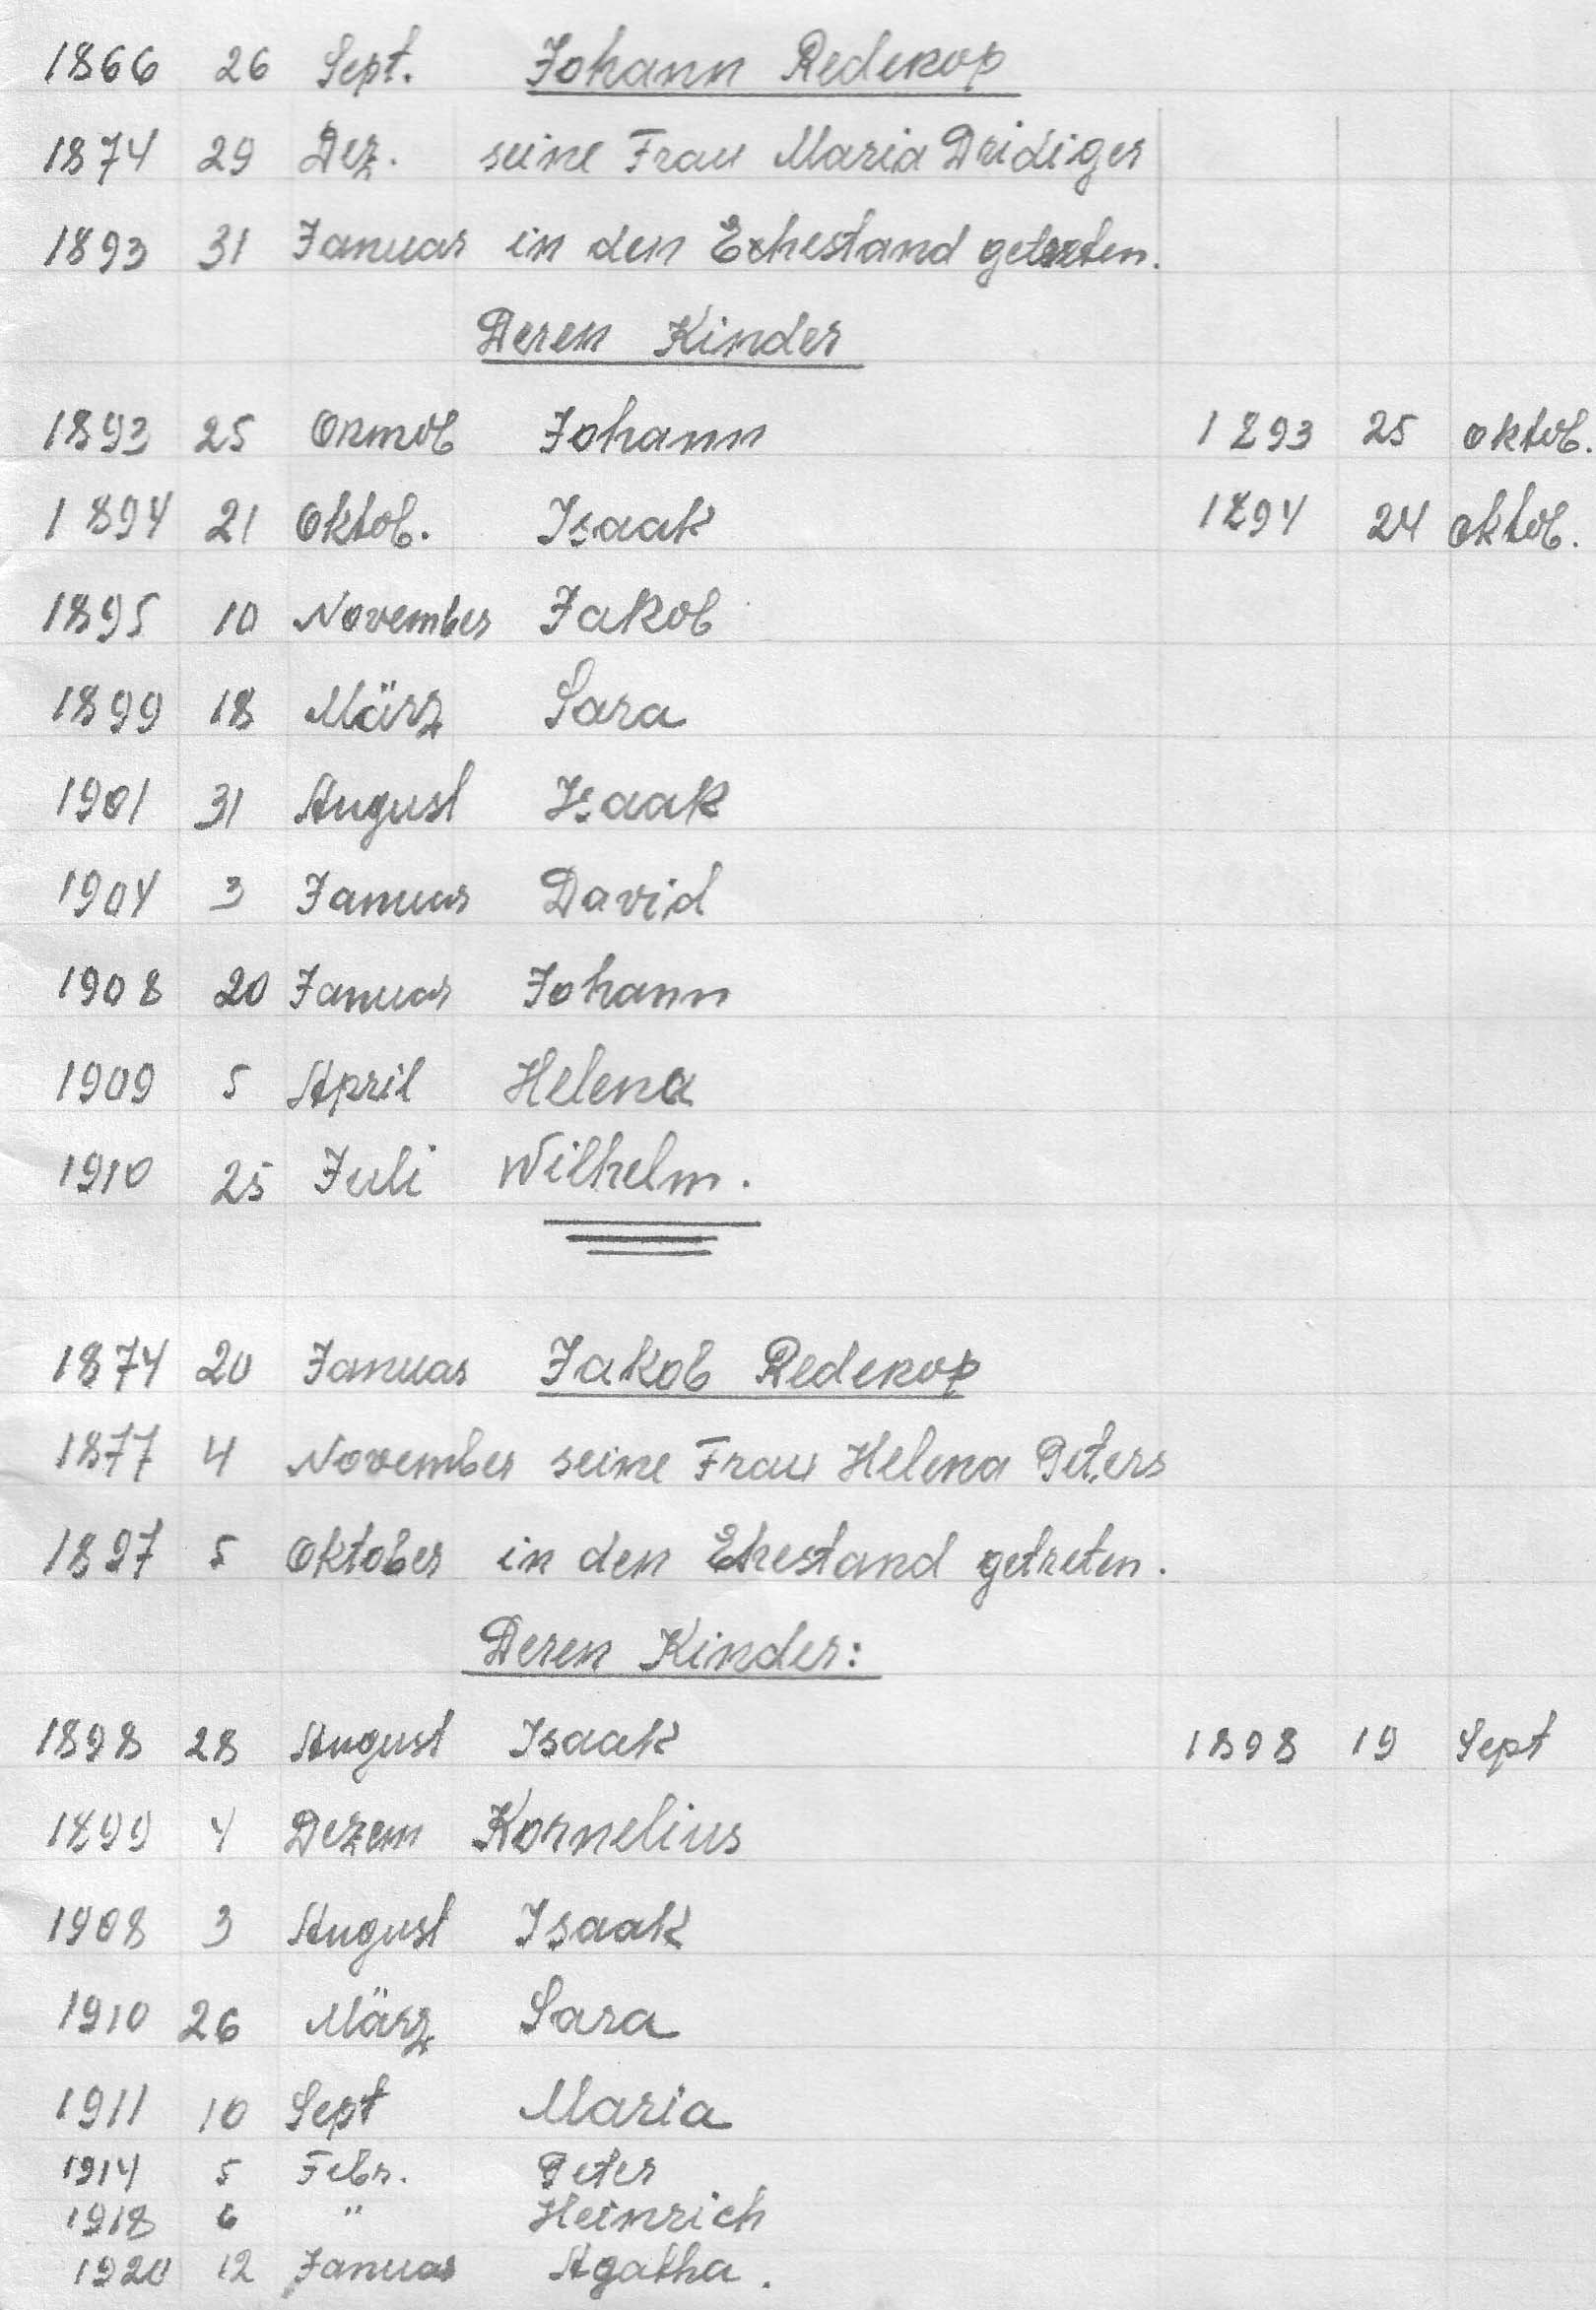 1866 26 Sept. Johann Redekop
1874 29 Dez. seine Frau Maria Dridiger
1893 31 Januar in den Ehestand getreten.
Deren Kinder
1893 25 Johann 1893 25 oktob.
1894 21 Oktob. Isaak 1894 24 oktob.
1895 10 November Jakob
1899 18 März Sara
1901 31 August Isaak
1904 3 Januar David
1908 20 Januar Johann
1909 5 April Helena
1910 25 Juli Wilhelm.
1874 20 Januar Jakob Redekop
1877 4 November seine Frau Helena Peters
1897 5 Oktober in den Ehestand getreten.
Deren Kinder:
1898 28 August Isaak 1898 19 Sept
1899 4 Dezem Kornelius
1908 3 August Isaak
1910 26 März Sara
1911 10 Sept Maria
1914 5 Febr. Peter
1918 6 " Heinrich
1920 12 Januar Agatha.